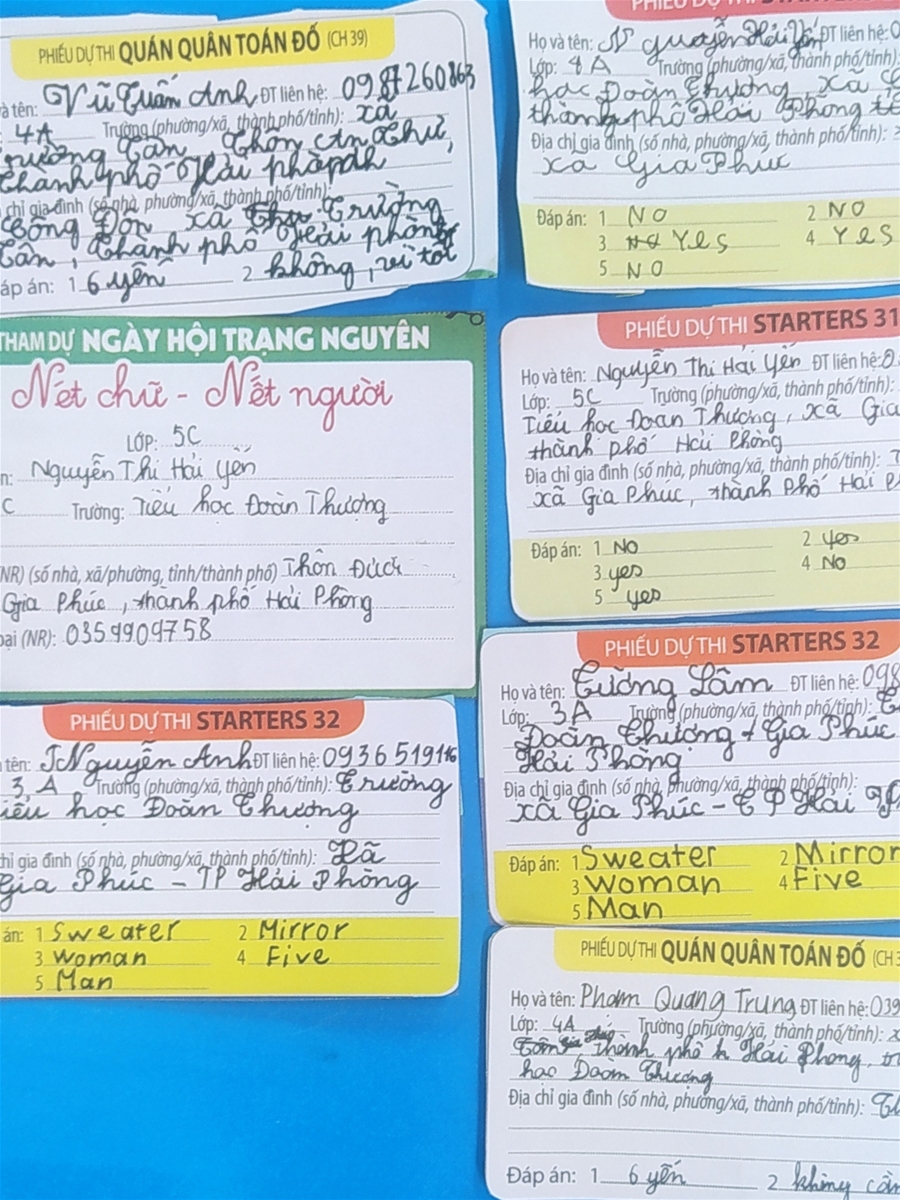 PHIẾU DỰ THI QUÁN QUÂN TOÁN ĐỐ (CH 39)
và tên: Vũ Tuấn Anh ĐT liên hệ:
4A Trường (phường/xã, thành phố/tỉnh): xã
Trường Tân, Thôn An Thư,
thành phố Hải
chỉ gia đình (số nhà, phường/xã, thành phố/tỉnh):
xã Trường
Tân, thành phố Hải phòng
áp án: 1 6 yến 2 không, vì tôi
THAM DỰ NGÀY HỘI TRẠNG NGUYÊN
Nét chữ - Nết người
LỚP: 5C
n: Nguyễn Thị Hải Yến
C Trường: Tiểu học Đoàn Thượng
(NR) (số nhà, xã/phường, tỉnh/thành phố) Thôn
Gia Phúc, thành phố Hải Phòng
oại (NR): 0359909758
PHIẾU DỰ THI STARTERS 32
tên: Nguyễn Anh ĐT liên hệ: 0936519116
3 A Trường (phường/xã, thành phố/tỉnh): Trường
iểu học Đoàn Thượng
hỉ gia đình (số nhà, phường/xã, thành phố/tỉnh): Xã
Gia Phúc - TP Hải Phòng
án: 1 Sweater 2 Mirror
3 Woman 4 Five
5 Man
PHIẾU DỰ THI STARTERS
Họ và tên: Nguyễn Hải Yến ĐT liên hệ: 0
Lớp: 4A Trường (phường/xã, thành phố/tỉnh):
học Đoàn Thượng, xã
thành phố Hải Phòng
Địa chỉ gia đình (số nhà, phường/xã, thành phố/tỉnh):
xã Gia Phúc
Đáp án: 1 NO 2 NO
3 Yes 4 Yes
5 NO
PHIẾU DỰ THI STARTERS 31
Họ và tên: Nguyễn Thi Hải Yến ĐT liên hệ: 0
Lớp: 5C Trường (phường/xã, thành phố/tỉnh):
Tiểu học Đoàn Thượng, xã Gia
thành phố Hải Phòng
Địa chỉ gia đình (số nhà, phường/xã, thành phố/tỉnh): T
xã Gia Phúc, thành phố Hải P
Đáp án: 1 No 2 yes
3 yes 4 No
5 yes
PHIẾU DỰ THI STARTERS 32
Họ và tên: Tường Lâm ĐT liên hệ: 098
Lớp: 3A Trường (phường/xã, thành phố/tỉnh): T
Đoàn Thượng - Gia Phúc
Hải Phòng
Địa chỉ gia đình (số nhà, phường/xã, thành phố/tỉnh):
xã Gia Phúc - TP Hải
Đáp án: 1 Sweater 2 Mirror
3 Woman 4 Five
5 Man
PHIẾU DỰ THI QUÁN QUÂN TOÁN ĐỐ (CH 3
Họ và tên: Phạm Quang Trung ĐT liên hệ: 039
Lớp: 4A Trường (phường/xã, thành phố/tỉnh): x
thành phố Hải Phong,
học Đoàn Thượng
Địa chỉ gia đình (số nhà, phường/xã, thành phố/tỉnh): Th
Đáp án: 1 6 yến 2 không cần